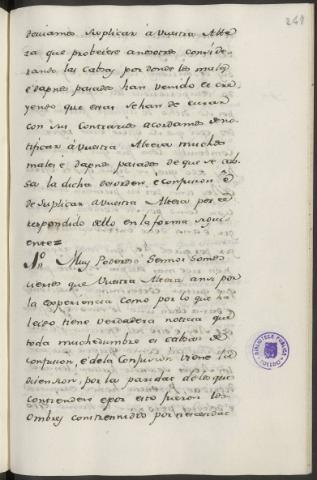 241
deviamos suplicar á Vuestra Alte
za que probeiese anosotros conside
rando las cabsas por donde los males
é daños pasados han venido et cre
yendo que estas sehan de curar
con sus contrarios acordamos deno
tificar á Vuestra Alteza muchos
males é daños pasados de que se cab
sa la dicha desorden, é confusion é
de suplicar aVuestra Alteza por el
respondido sello en la forma sigui
ente=
Muy Poderoso Sennor Somos
ciertos que Vuestra Alteza ansi por
la experiencia como por lo que ha
leido tiene verdadera noticia que
toda muchedumbre es cabsa de
confusion, é dela Confusion viene la
disension, por la paridat delos que
contienden é por esto fueron los
ombres constrennidos por necesidat
BIBLIOTECA PUBLICA
TOLEDO